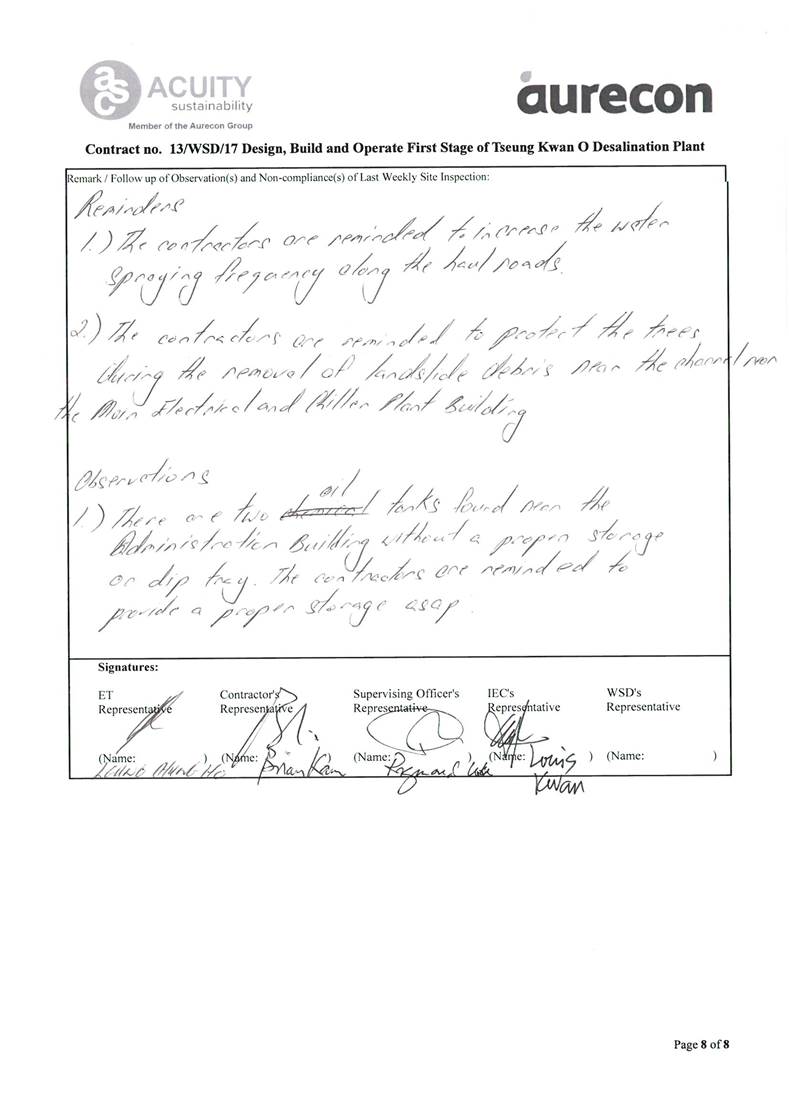 asc ACUITY
sustainability
Member of the Aurecon Group
aurecon
Contract no. 13/WSD/17 Design, Build and Operate First Stage of Tseung Kwan O Desalination Plant
Remark / Follow up of Observation(s) and Non-compliance(s) of Last Weekly Site Inspection:
Reminders
1.) The contractors are reminded to increase the water
spraying frequency along the haul roads.
2.) The contractors are reminded to protect the trees
during the removal of landslide debris near the channel near
the Main Electrical and Chiller Plant Building
Observations
oil
1.) There are two chemical tanks found near the
Administration Building without a proper storage
or dip tray. The contractors are reminded to
provide a proper storage asap.
Signatures:
ET Representative
Contractor's Representative
Supervising Officer's Representative
IEC's Representative
WSD's Representative
(Name: )
(Name: Brian Kam
(Name: Raymond )
(Name: Louis Kwan )
(Name: )
Page 8 of 8